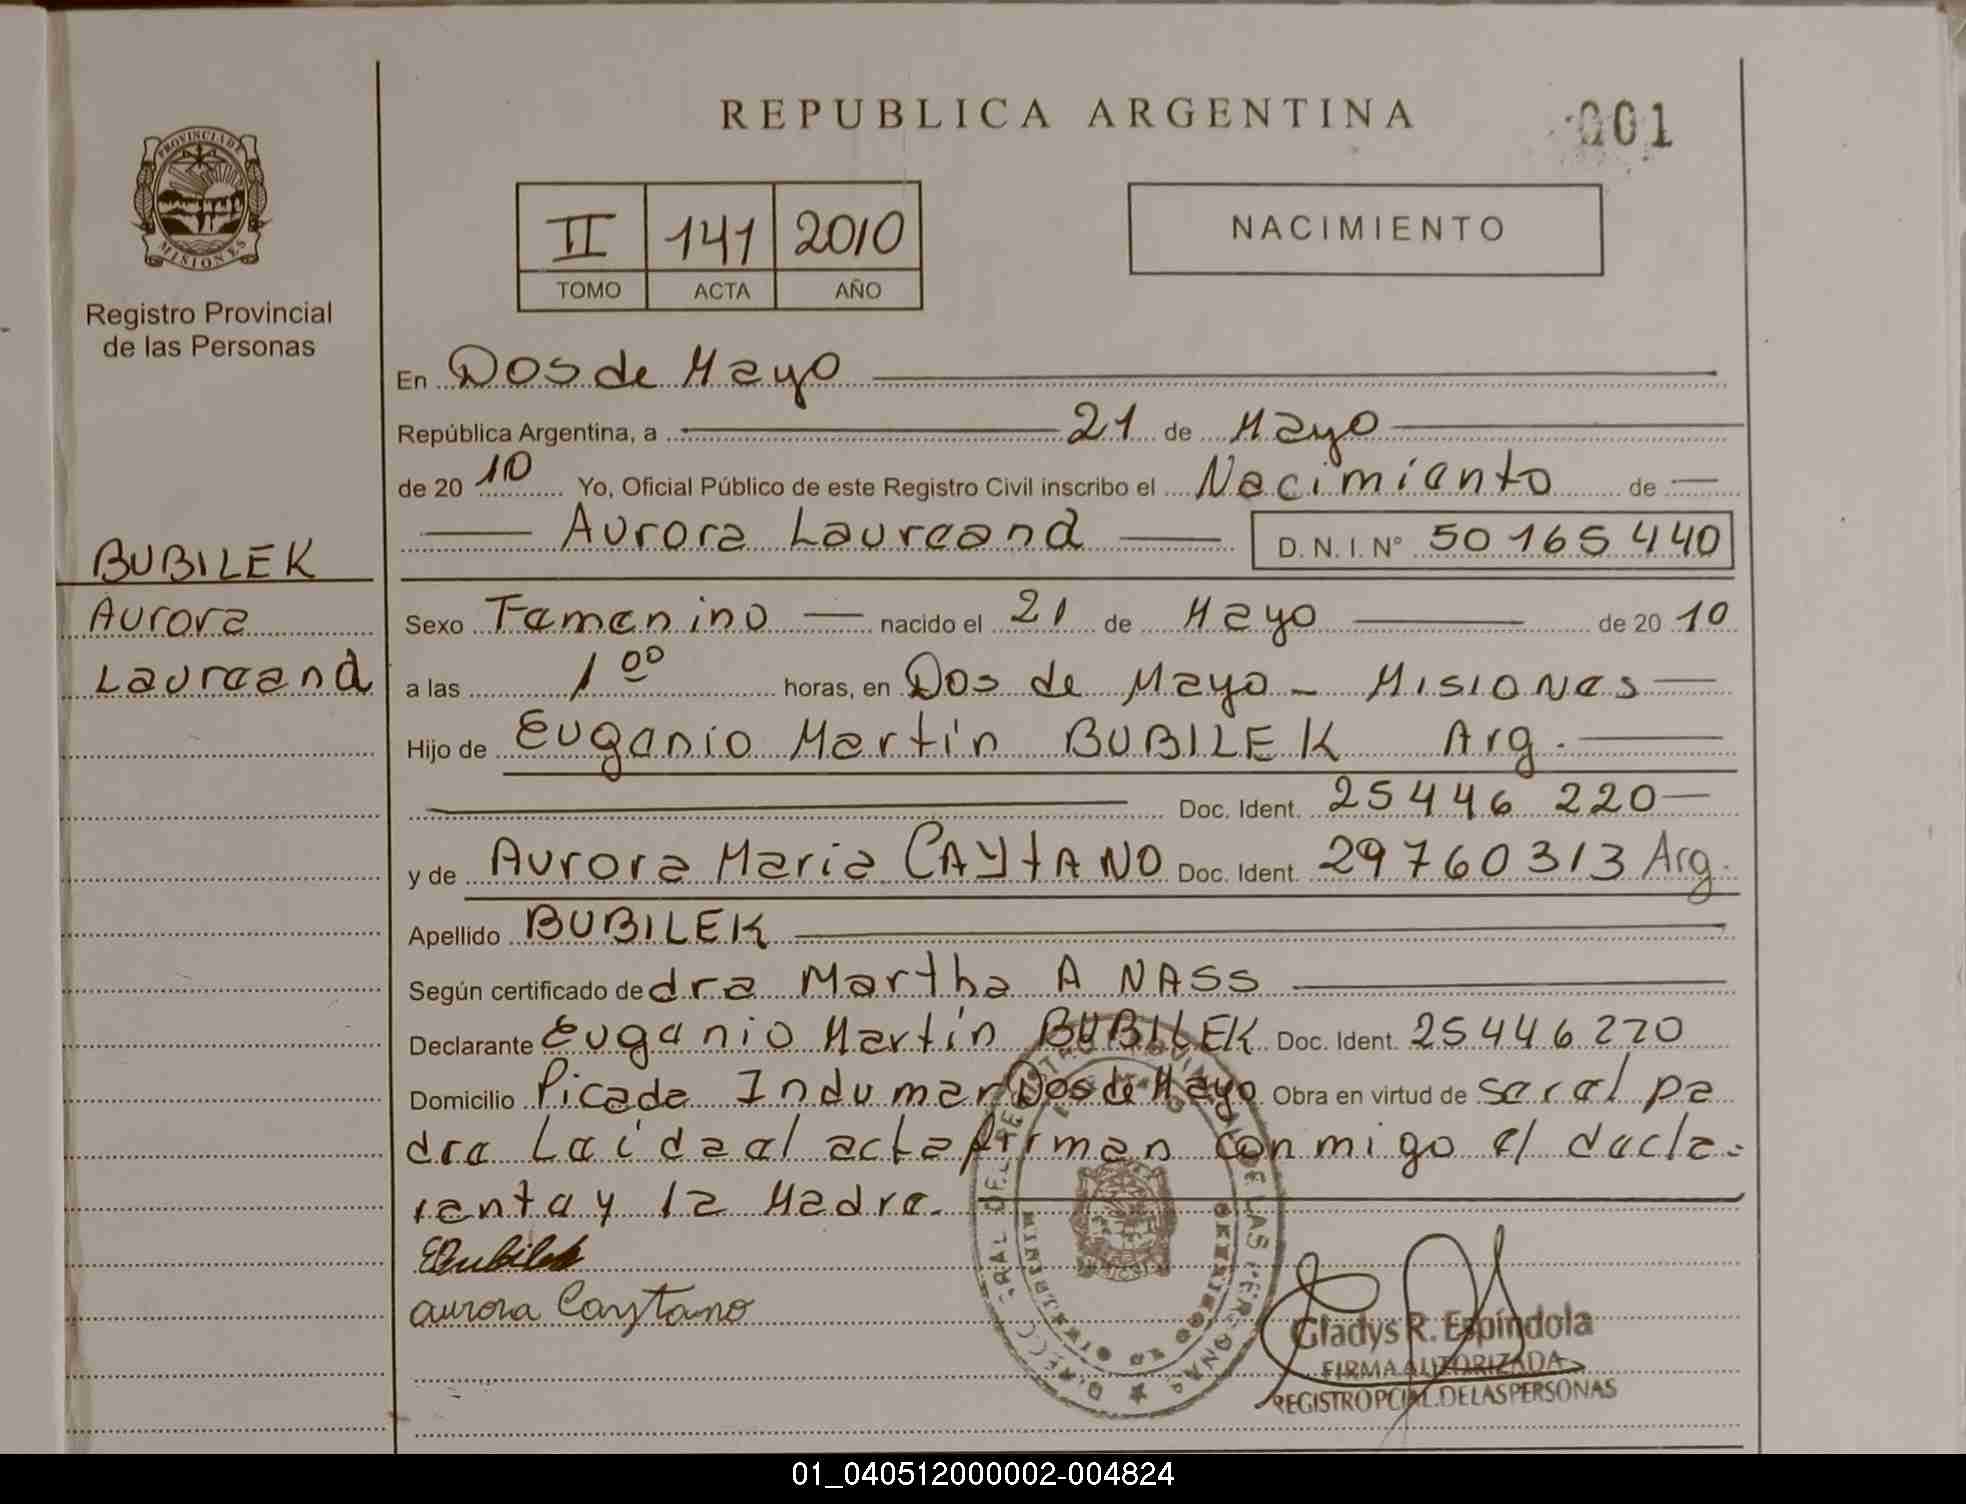 REPUBLICA ARGENTINA
001
PROVINCIA DE
MISIONES
Registro Provincial
de las Personas
II 141 2010
TOMO ACTA AÑO
NACIMIENTO
En Dos de Mayo
República Argentina, a 21 de Mayo
de 20 10 Yo, Oficial Público de este Registro Civil inscribo el Nacimiento de
Aurora Laureand D. N. I. Nº 50 165 440
BUBILEK
Aurora
Laureand
Sexo Femenino nacido el 21 de Mayo de 20 10
a las 1 00 horas, en Dos de Mayo - Misiones
Hijo de Eugenio Martín BUBILEK Arg.
Doc. Ident. 25446 220
y de Aurora Maria CAYtANO Doc. Ident. 29760313 Arg.
Apellido BUBILEK
Según certificado de dra Martha A NASS
Declarante Eugenio Martín BUBILEK Doc. Ident. 25446220
Domicilio Picada Indumar Dos de Mayo Obra en virtud de ser el pa
dre Leida el acta firman conmigo el decla-
rante y la Madre.
EBubilek
aurora Caytano
Gladys R. Espíndola
FIRMA AUTORIZADA
REGISTRO PCIAL. DE LAS PERSONAS
01_040512000002-004824